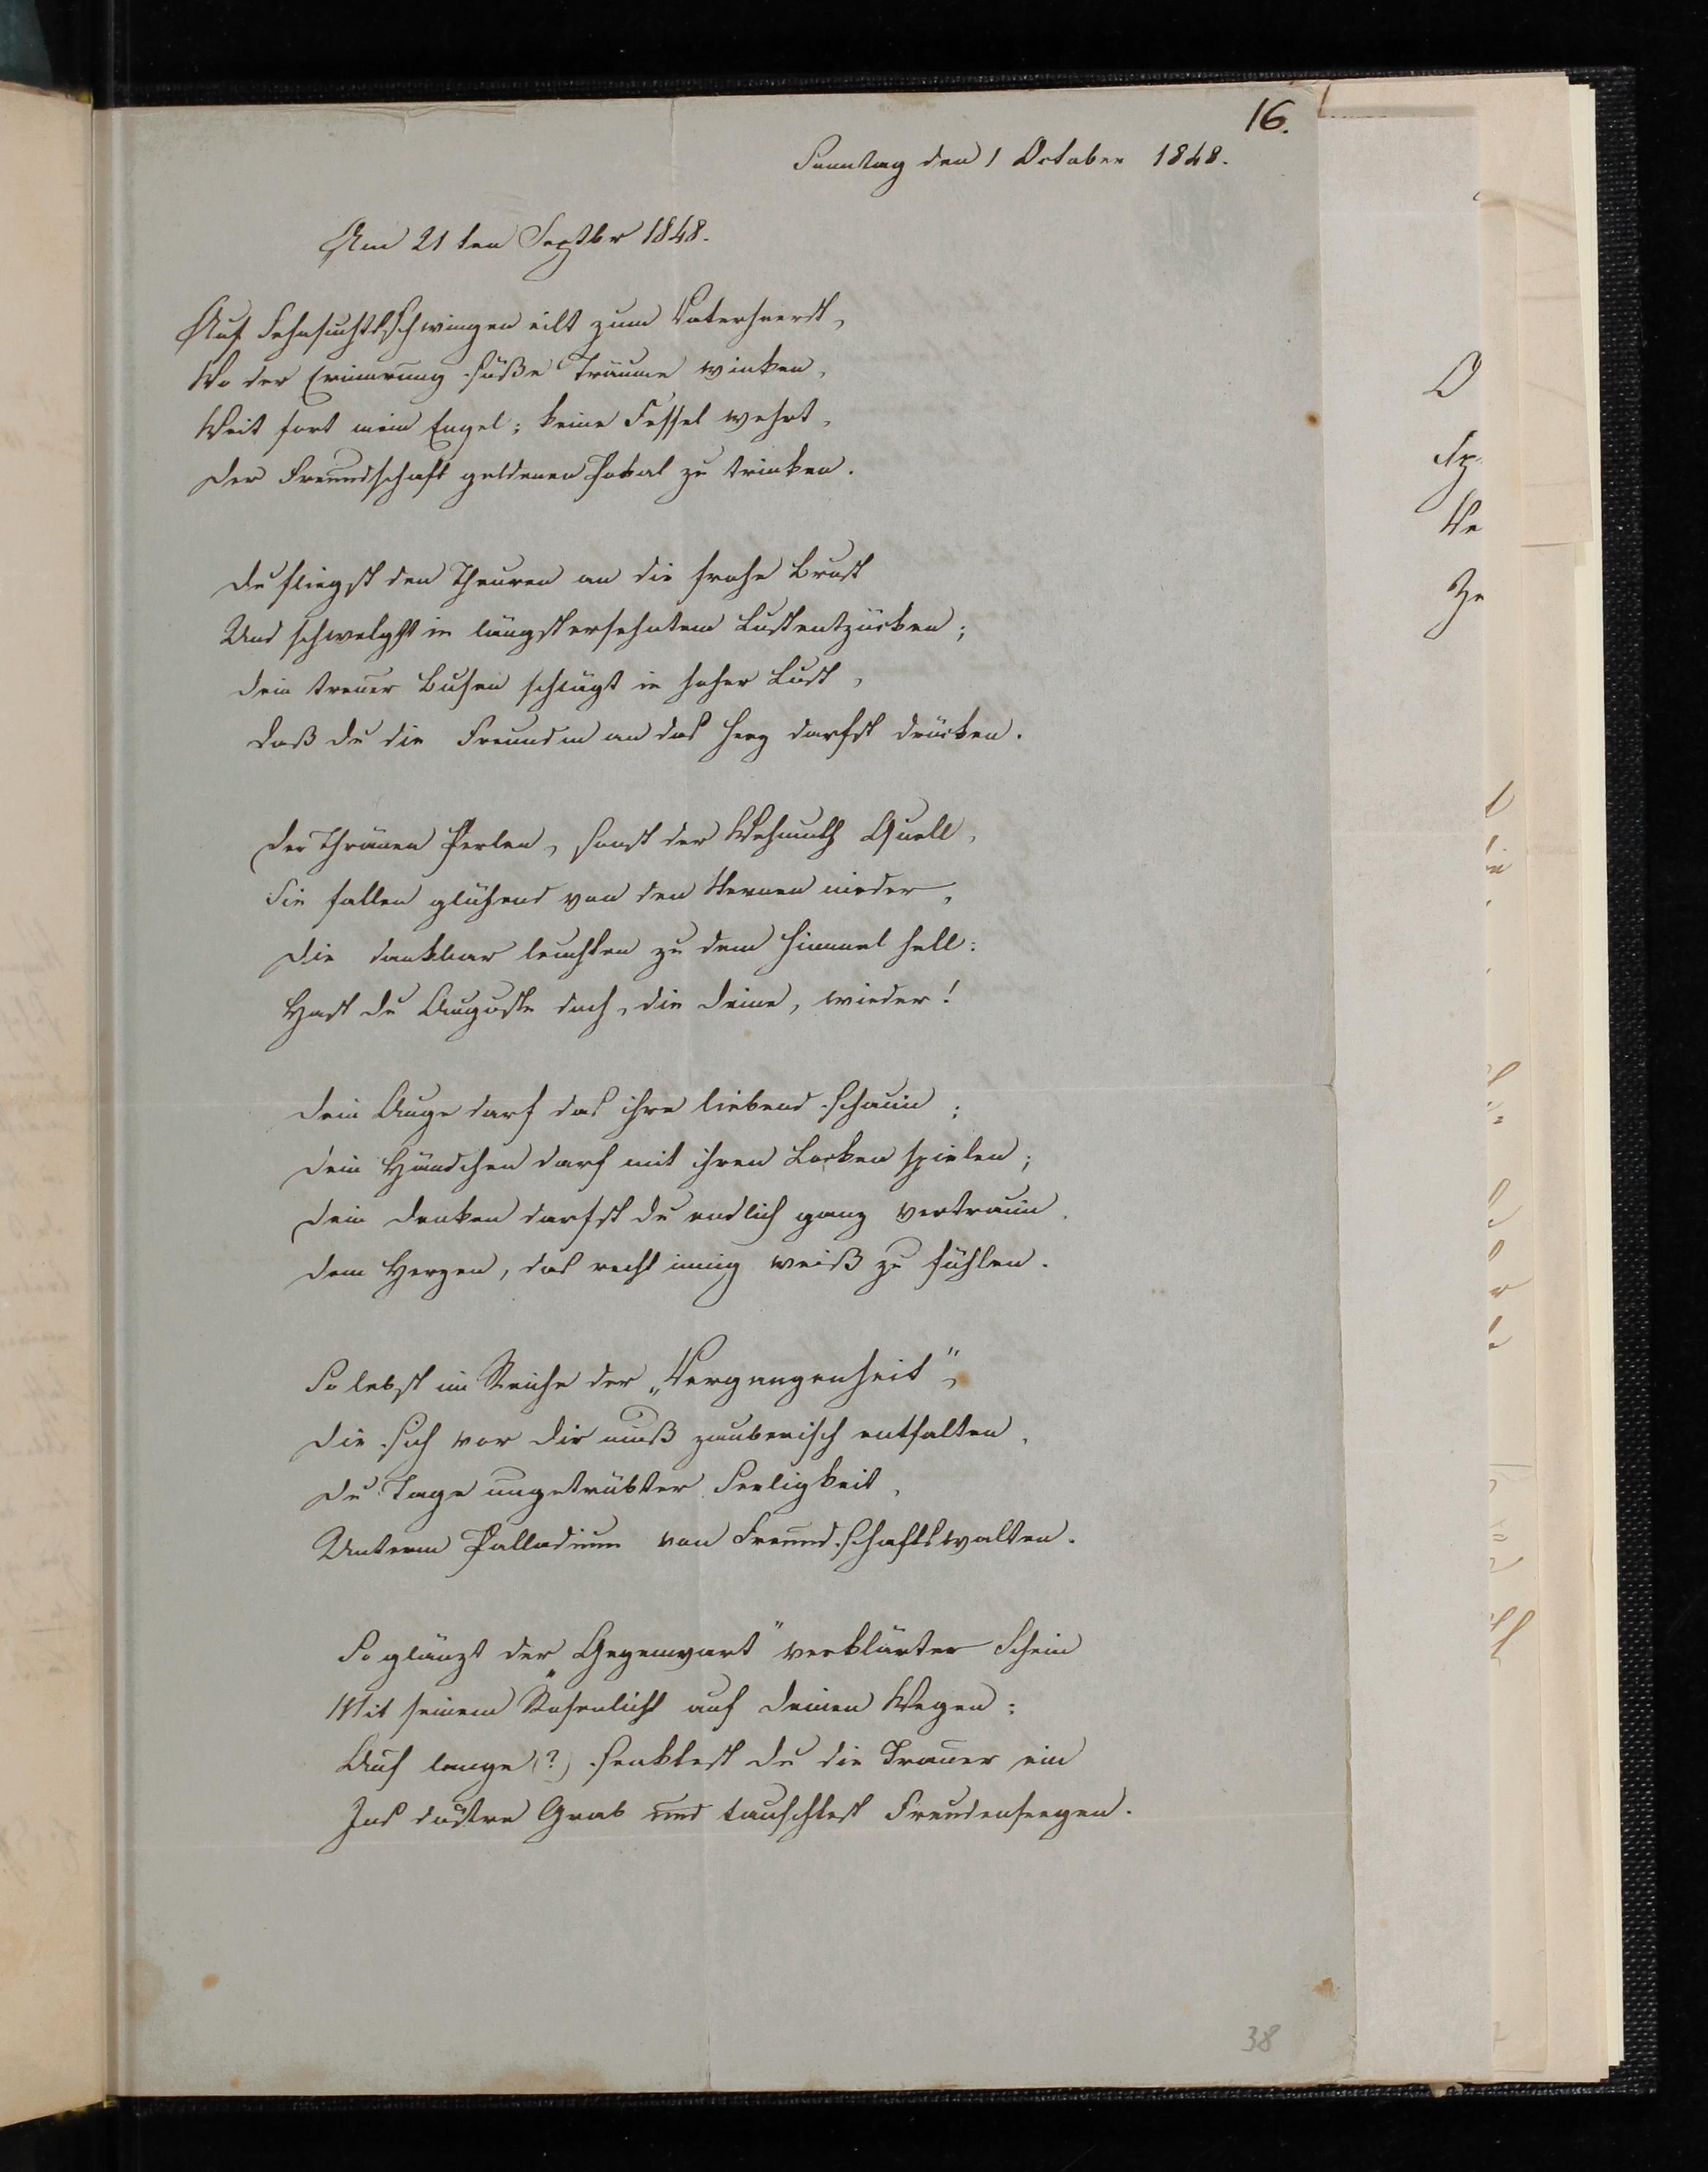 16.
Sonntag den 1 October 1848.
Am 21ten Septbr 1848.
Auf Sehnsuchtsschwingen eilt zum Vaterheerd,
Wo der Erinnrung süße Träume winken,
Weit fort mein Engel; keine Fessel wehrt,
Der Freundschaft goldenen Pokal zu trinken.
Du fliegst den Theuren an die frohe Brust
Und schwelgst in längst ersehntem Lustentzücken;
Dein treuer Busen schlägt in hoher Lust,
Daß du die Freundin an das Herz darfst drücken.
Der Thränen Perlen, sonst der Wehmuth Quell,
Sie fallen glühend von den Sternen nieder,
Die dankbar leuchten zu dem Himmel hell:
Hast du Auguste doch, die deine, wieder!
Dein Auge darf das ihre liebend schaun;
Dein Händchen darf mit ihren Locken spielen;
Dein Denken darfst du endlich ganz vertraun
Dem Herzen, das recht innig weiß zu fühlen.
So lebst im Reiche der „Vergangenheit",
Die sich vor dir muß zauberisch entfalten,
Du Tage ungetrübter Seeligkeit,
Unterm Palladium von Freundschaftswalten.
So glänzt der „Gegenwart" verklärter Schein
Mit seinem Rosenlicht auf deinen Wegen;
Auf lange (?) senktest du die Trauer ein
Ins düstre Grab und tauschtest Freudenseegen.
38